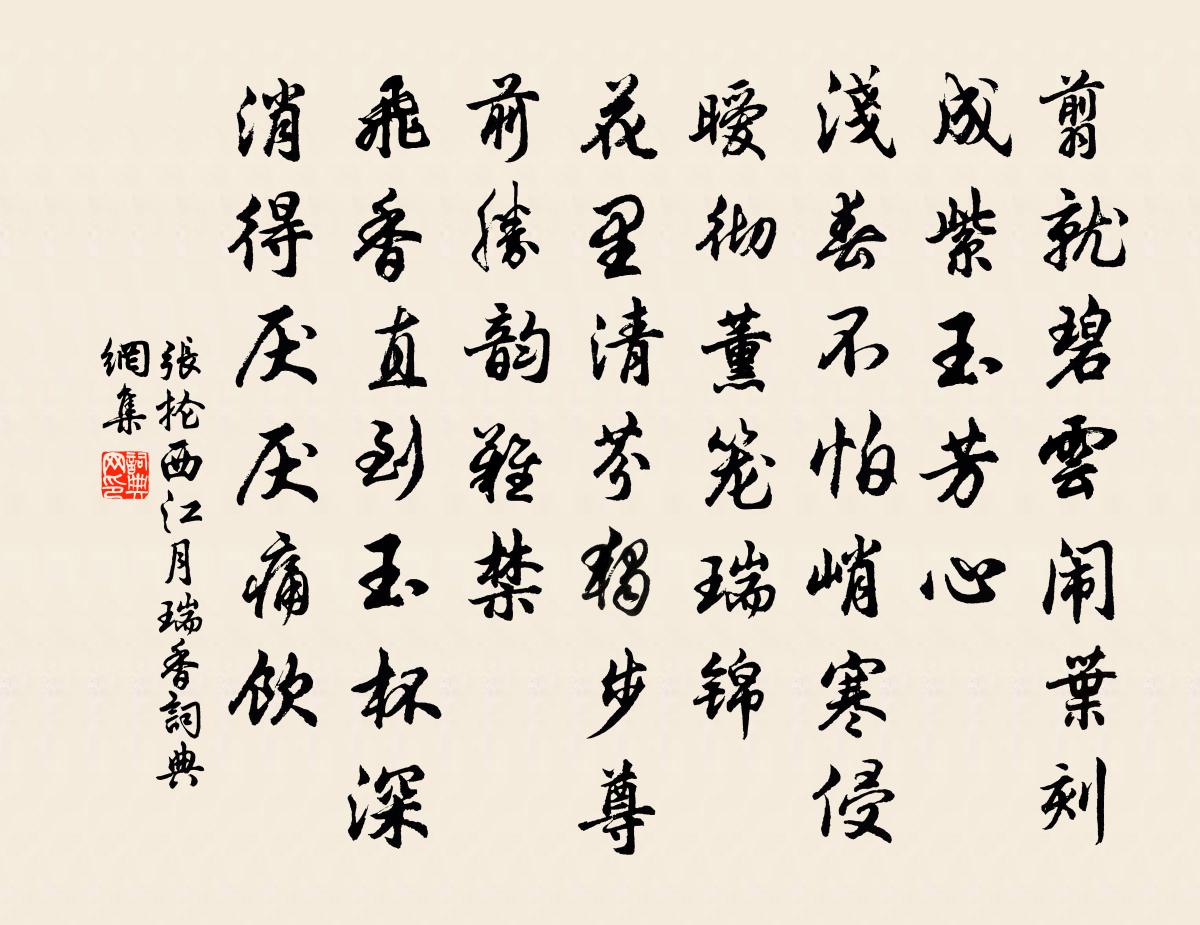 翦就碧雲闹葉刻
成紫玉芳心
淺春不怕峭寒侵
暖彻薰笼瑞锦
花里清芬獨步尊
前勝韵難禁
飛香直到玉杯深
消得厌厌痛饮
張抡西江月瑞香詞典
網集
詞典网印